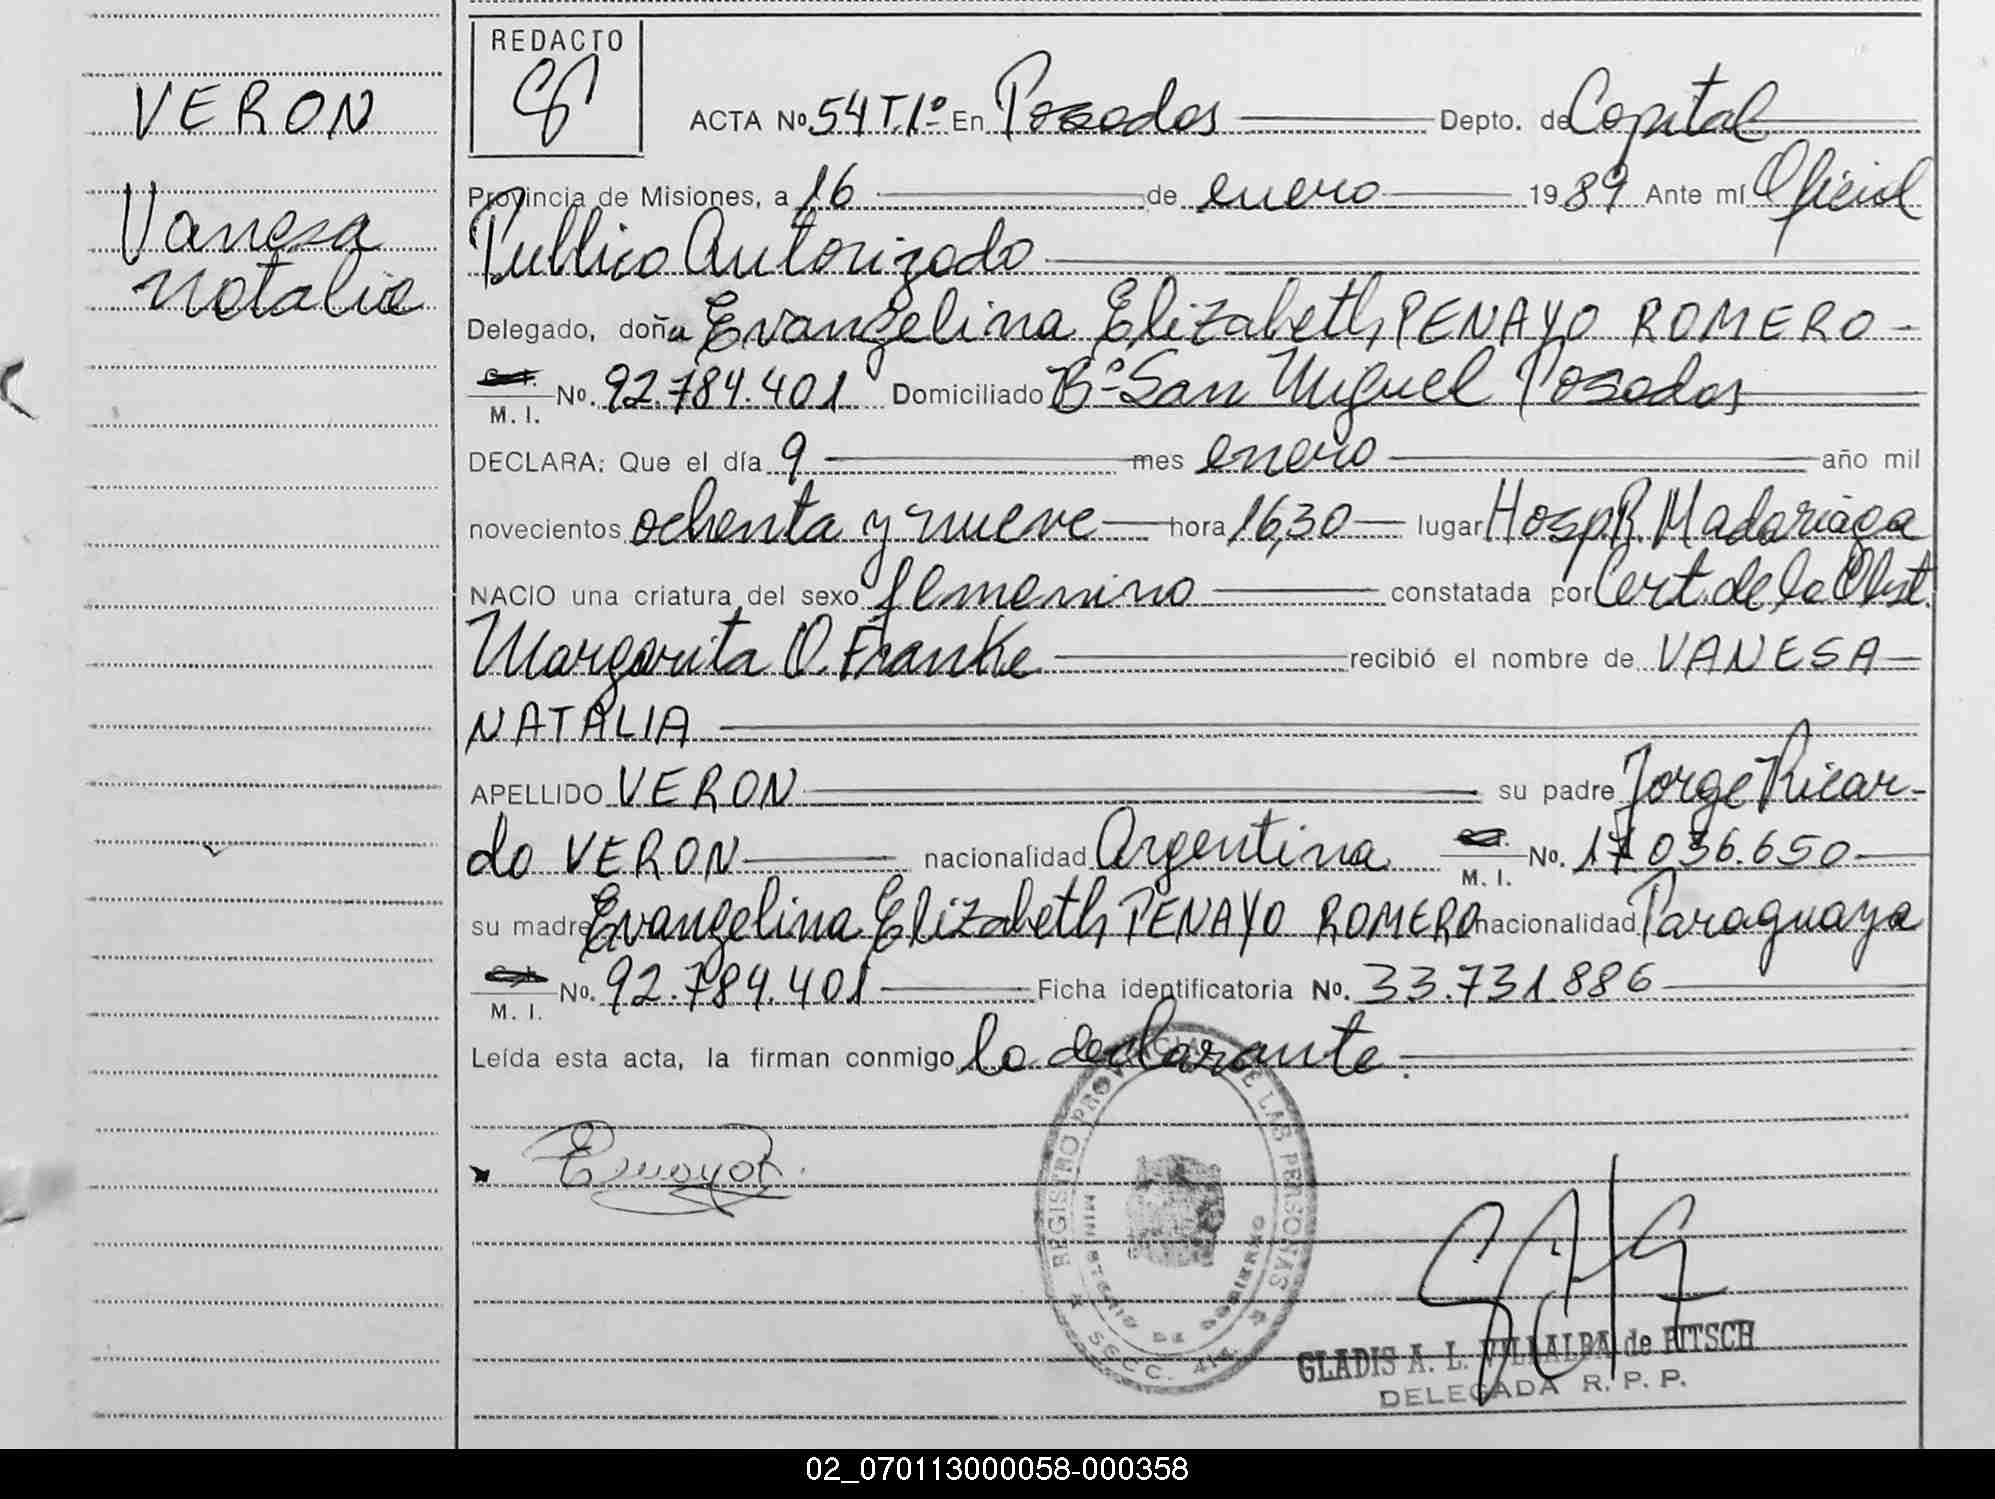 REDACTO
VERON
Vanesa
Natalia
ACTA Nº 54 T.1º En Posadas Depto. de Capital
Provincia de Misiones, a 16 de enero 1989 Ante mí Oficial
Publico Autorizado
Delegado, doña Evangelina Elizabeth PENAYO ROMERO -
M. I. No. 92.784.401 Domiciliado Bº San Miguel Posadas
DECLARA: Que el día 9 mes enero año mil
novecientos ochenta y nueve hora 16,30 lugar Hosp. R. Madariaga
NACIO una criatura del sexo femenino constatada por Cert. de la Obst.
Margarita O. Franke recibió el nombre de VANESA
NATALIA
APELLIDO VERON su padre Jorge Ricar-
do VERON nacionalidad Argentina M. I. No. 17.036.650
su madre Evangelina Elizabeth PENAYO ROMERO nacionalidad Paraguaya
M. I. No. 92.784.401 Ficha identificatoria No. 33.731.886
Leída esta acta, la firman conmigo la declarante.
REGISTRO PROVINCIAL DE LAS PERSONAS
MINISTERIO DE GOBIERNO
SECC. 4ta.
GLADIS A. L. VILLALBA de RITSCH
DELEGADA R. P. P.
02_070113000058-000358